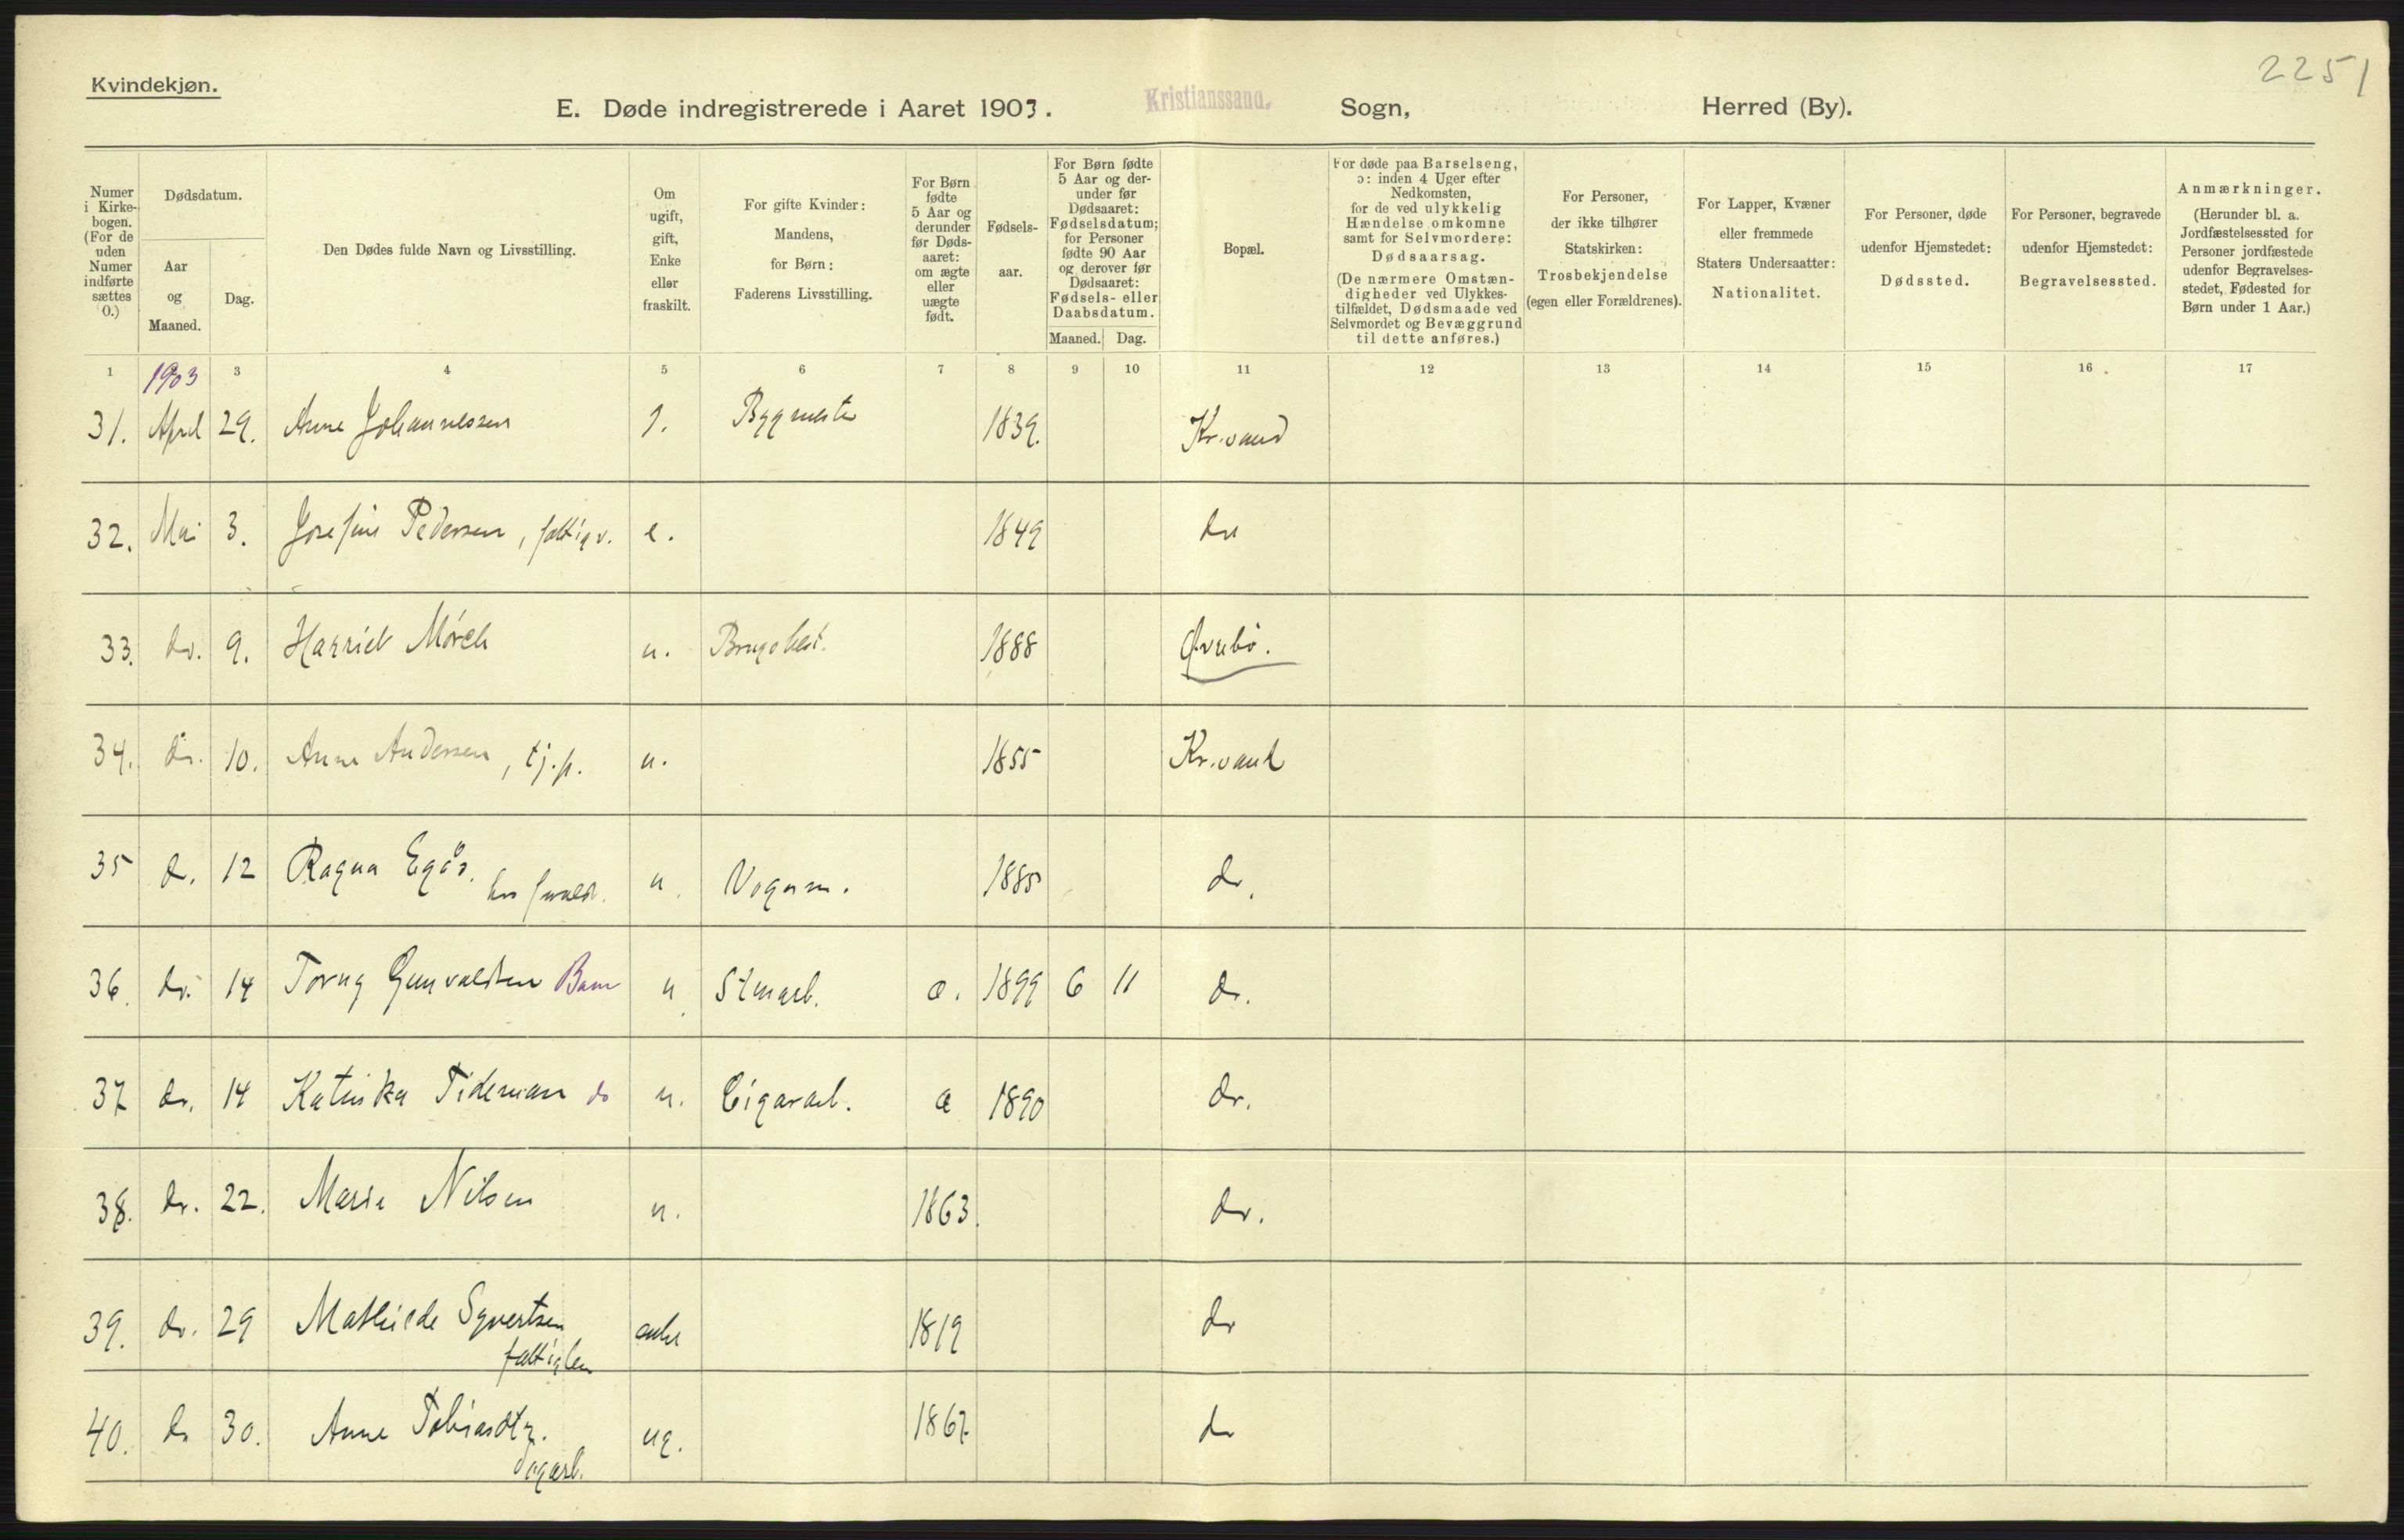 2251
Kvindekjøn.
E. Døde indregistrerede i Aaret 1903. Kristianssand. Sogn, Herred (By).
Numer i Kirkebogen. (For de uden Numer indførte sættes 0.)
Dødsdatum.
Aar og Maaned.
Dag.
Den Dødes fulde Navn og Livsstilling.
Om ugift, gift, Enke eller fraskilt.
For gifte Kvinder: Mandens, for Børn: Faderens Livsstilling.
For Børn fødte 5 Aar og derunder før Dødsaaret: om ægte eller uægte født.
Fødselsaar.
For Børn fødte 5 Aar og derunder før Dødsaaret: Fødselsdatum; for Personer fødte 90 Aar og derover før Dødsaaret: Fødsels- eller Daabsdatum.
Maaned. Dag.
Bopæl.
For døde paa Barselseng, ɔ: inden 4 Uger efter Nedkomsten, for de ved ulykkelig Hændelse omkomne samt for Selvmordere: Dødsaarsag. (De nærmere Omstændigheder ved Ulykkestilfældet, Dødsmaade ved Selvmordet og Bevæggrund til dette anføres.)
For Personer, der ikke tilhører Statskirken: Trosbekjendelse (egen eller Forældrenes).
For Lapper, Kvæner eller fremmede Staters Undersaatter: Nationalitet.
For Personer, døde udenfor Hjemstedet: Dødssted.
For Personer, begravede udenfor Hjemstedet: Begravelsessted.
Anmærkninger. (Herunder bl. a. Jordfæstelsessted for Personer jordfæstede udenfor Begravelsesstedet, Fødested for Børn under 1 Aar.)
1 1903 3 4 5 6 7 8 9 10 11 12 13 14 15 16 17
31. April 29. Anne Johannessen g. Bygmester 1839. Kr.sand
32. Mai 3. Josefine Pedersen, fattigv. e. 1849 do
33. do. 9. Harriet Mörch u. 1888 Øvrebö.
34. do. 10. Anne Andersen, tj.p. u. 1855 Kr.sand
35 do. 12 Ragna Egås. u. Vognm. 1885 do.
36. do. 14 Torny Gunvaldsen Barn u. æ. 1899 6 11 do.
37 do. 14 Katinka Tideman do u. Cigararb. æ 1890 do.
38. do. 22. Marie Nilsen u. 1863. do.
39. do. 29 Mathilde Syvertsen enke 1819 do
fattiglem
40. do 30. Anne Tobiasdtr. ug. 1867 do
dagarb.